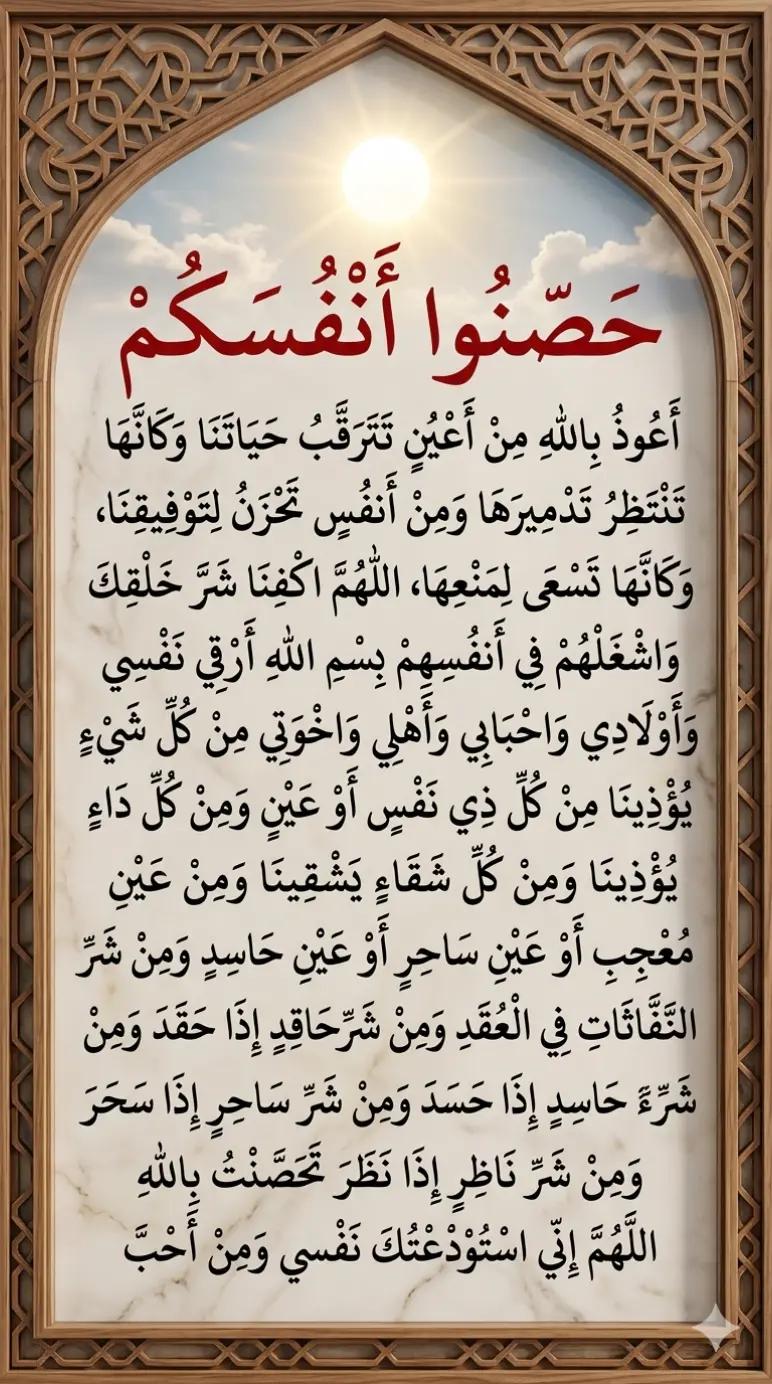 حَصّنُوا أَنْفُسَكُمْ
أَعُوذُ بِاللهِ مِنْ أَعْيُنٍ تَتَرَقَّبُ حَيَاتَنَا وَكَانَّهَا
تَنْتَظِرُ تَدْمِيرَهَا وَمِنْ أَنفُسٍ تَحْزَنُ لِتَوْفِيقِنَا،
وَكَانَّهَا تَسْعَى لِمَنْعِهَا، اللّٰهُمَّ اكْفِنَا شَرَّ خَلْقِكَ
وَاشْغَلْهُمْ فِي أَنفُسِهِمْ بِسْمِ اللهِ أَرْقِي نَفْسِي
وَأَوْلَادِي وَاحْبَابِي وَأَهْلِي وَاخْوَتِي مِنْ كُلِّ شَيْءٍ
يُؤْذِينَا مِنْ كُلِّ ذِي نَفْسٍ أَوْ عَيْنٍ وَمِنْ كُلِّ دَاءٍ
يُؤْذِينَا وَمِنْ كُلِّ شَقَاءٍ يَشْقِينَا وَمِنْ عَيْنِ
مُعْجِبِ أَوْ عَيْنِ سَاحِرٍ أَوْ عَيْنِ حَاسِدٍ وَمِنْ شَرِّ
النَّفَّاثَاتِ فِي الْعُقَدِ وَمِنْ شَرِّحَاقِدٍ إِذَا حَقَدَ وَمِنْ
شَرِّءَ حَاسِدٍ إِذَا حَسَدَ وَمِنْ شَرِّ سَاحِرٍ إِذَا سَحَرَ
وَمِنْ شَرِّ نَاظِرٍ إِذَا نَظَرَ تَحَصَّنْتُ بِاللهِ
اللَّهُمَّ إِنّي اسْتُوْدْعْتُكَ نَفْسي وَمِنْ أَحْبَّ